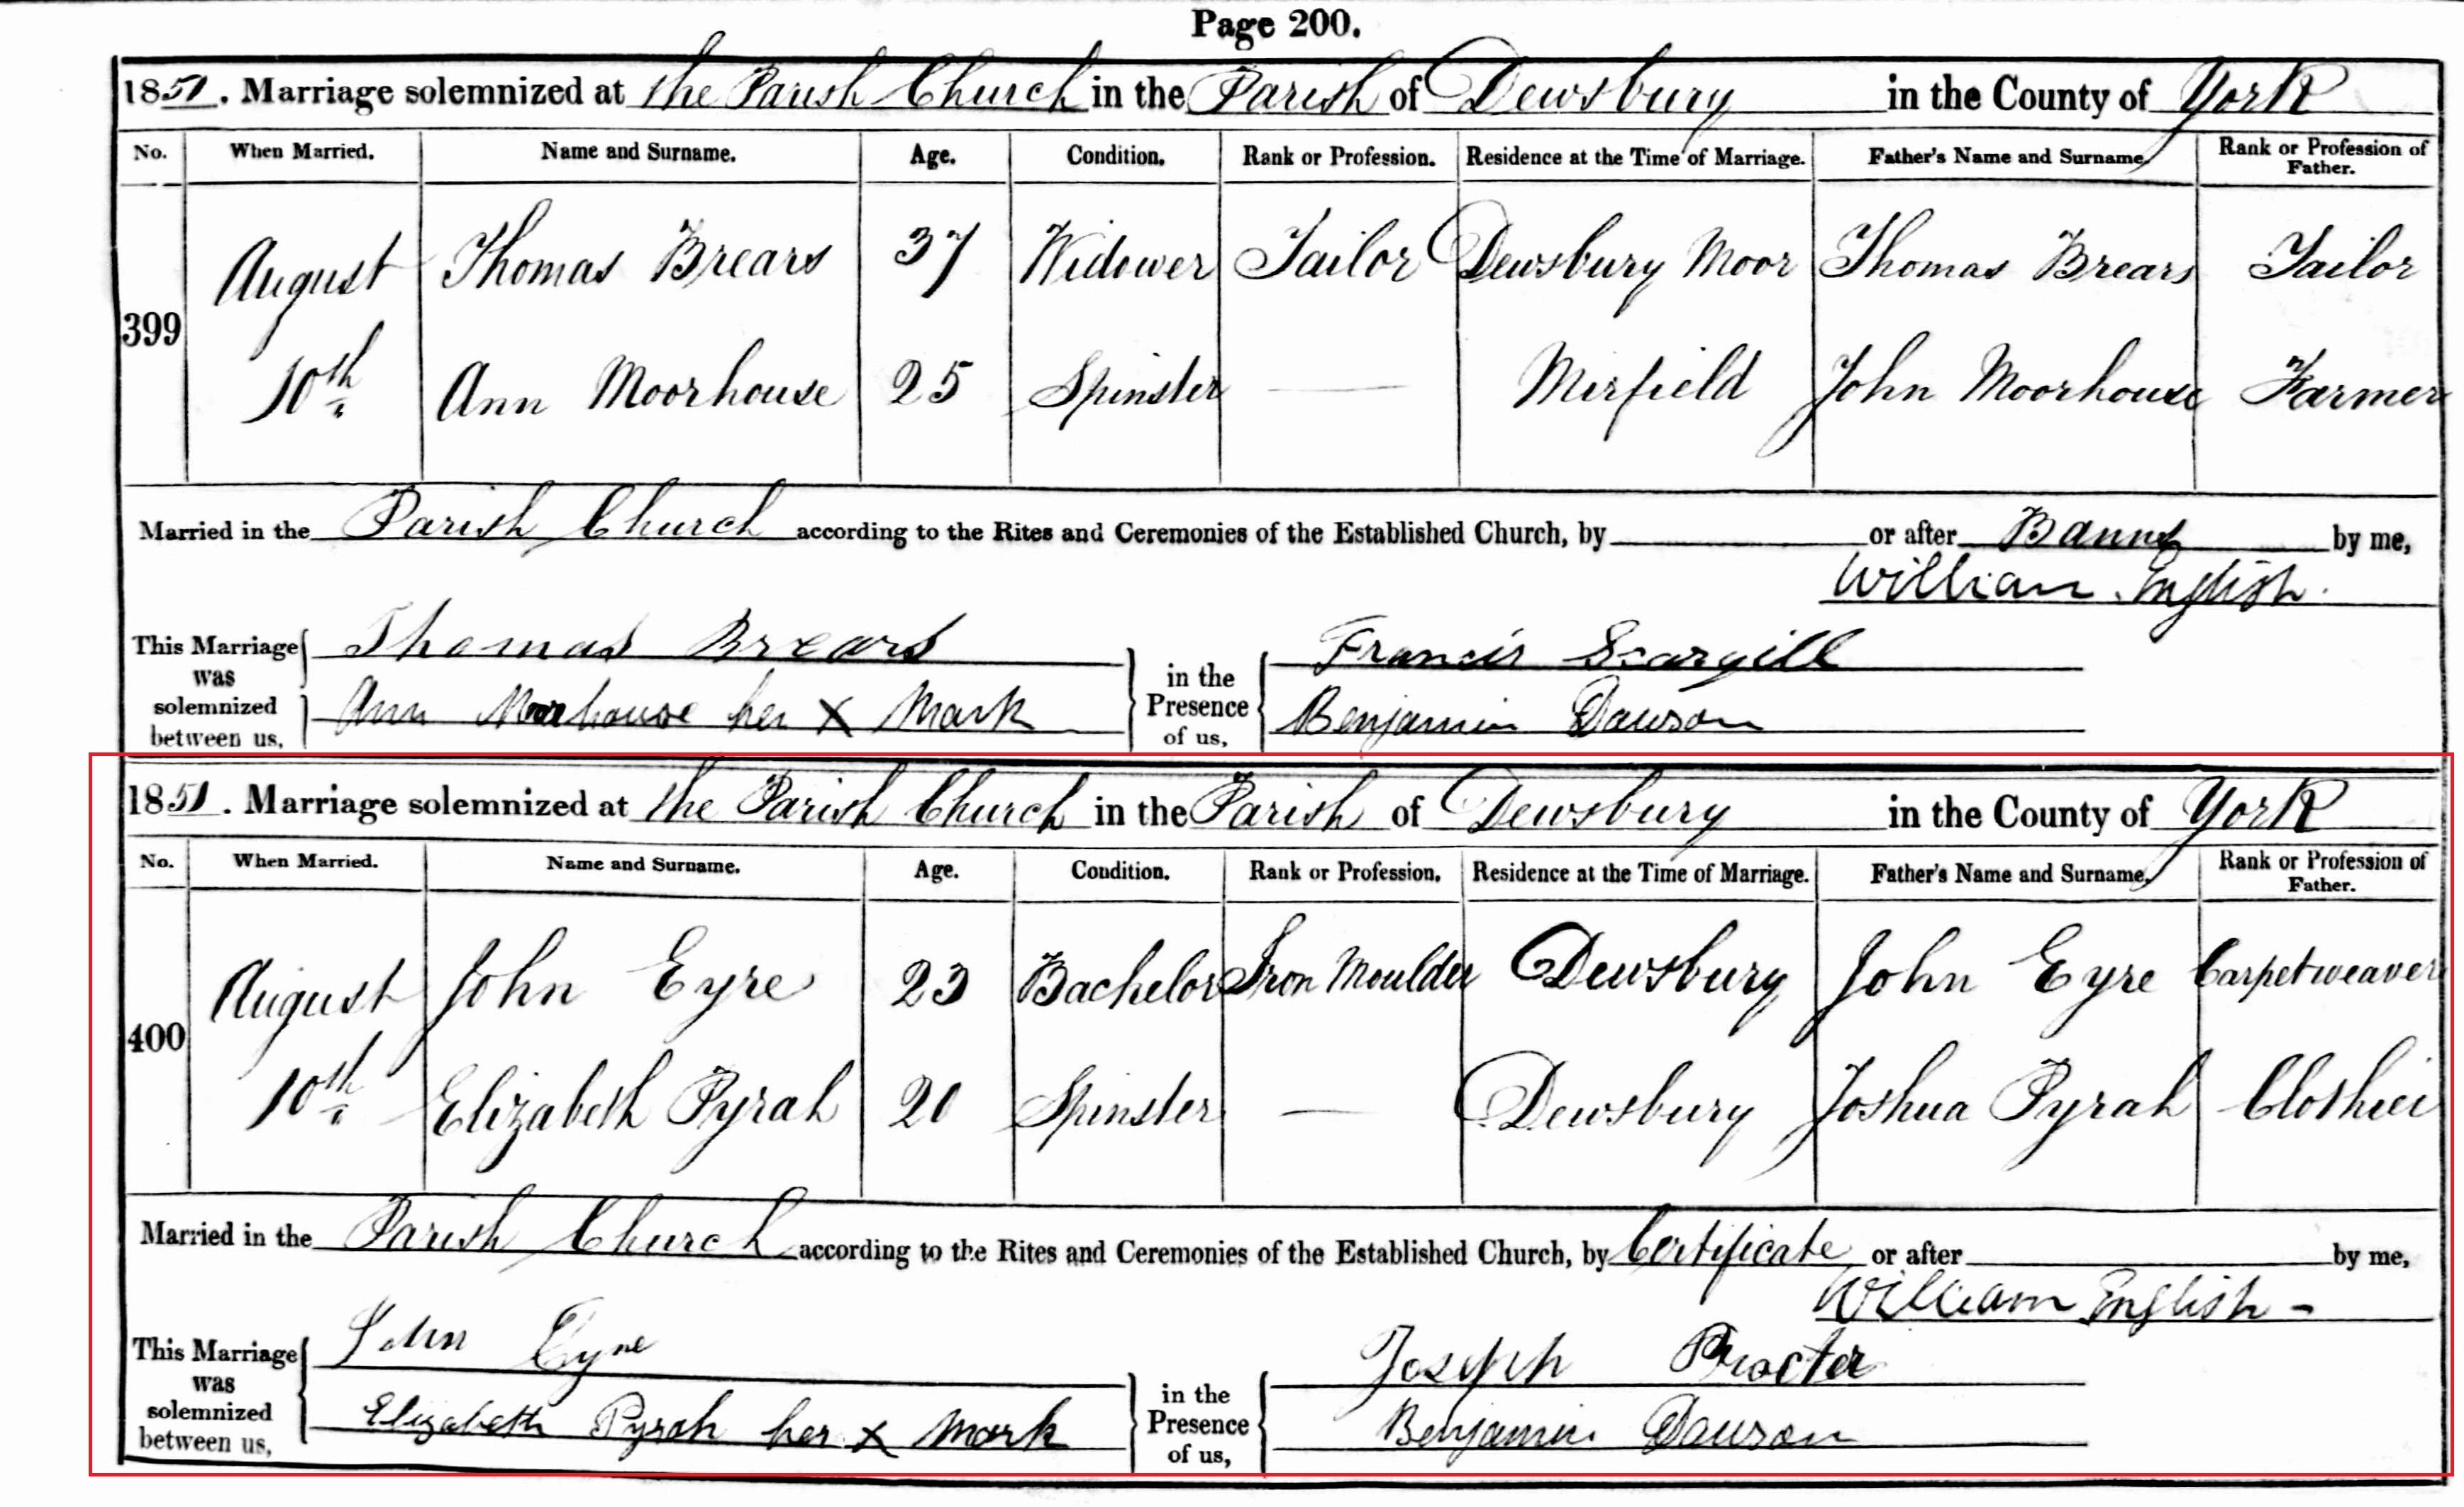 Page 200.
1851. Marriage solemnized at the Parish Church in the Parish of Dewsbury in the County of York
No. When Married. Name and Surname. Age. Condition. Rank or Profession. Residence at the Time of Marriage. Father's Name and Surname. Rank or Profession of Father.
399 August Thomas Brears 37 Widower Tailor Dewsbury Moor Thomas Brears Tailor
10th Ann Moorhouse 25 Spinster — Mirfield John Moorhouse Farmer
Married in the Parish Church according to the Rites and Ceremonies of the Established Church, by or after Banns by me,
William English.
This Marriage was solemnized between us, Thomas Brears in the Presence of us, Francis Scargill
Ann Moorhouse her X Mark Benjamin Dawson
1851. Marriage solemnized at the Parish Church in the Parish of Dewsbury in the County of York
No. When Married. Name and Surname. Age. Condition. Rank or Profession. Residence at the Time of Marriage. Father's Name and Surname. Rank or Profession of Father.
400 August John Eyre 23 Bachelor Iron Moulder Dewsbury John Eyre Carpetweaver
10th Elizabeth Pyrah 20 Spinster — Dewsbury Joshua Pyrah Clothier
Married in the Parish Church according to the Rites and Ceremonies of the Established Church, by Certificate or after by me,
William English -
This Marriage was solemnized between us, John Eyre in the Presence of us, Joseph Procter
Elizabeth Pyrah her X Mark Benjamin Dawson